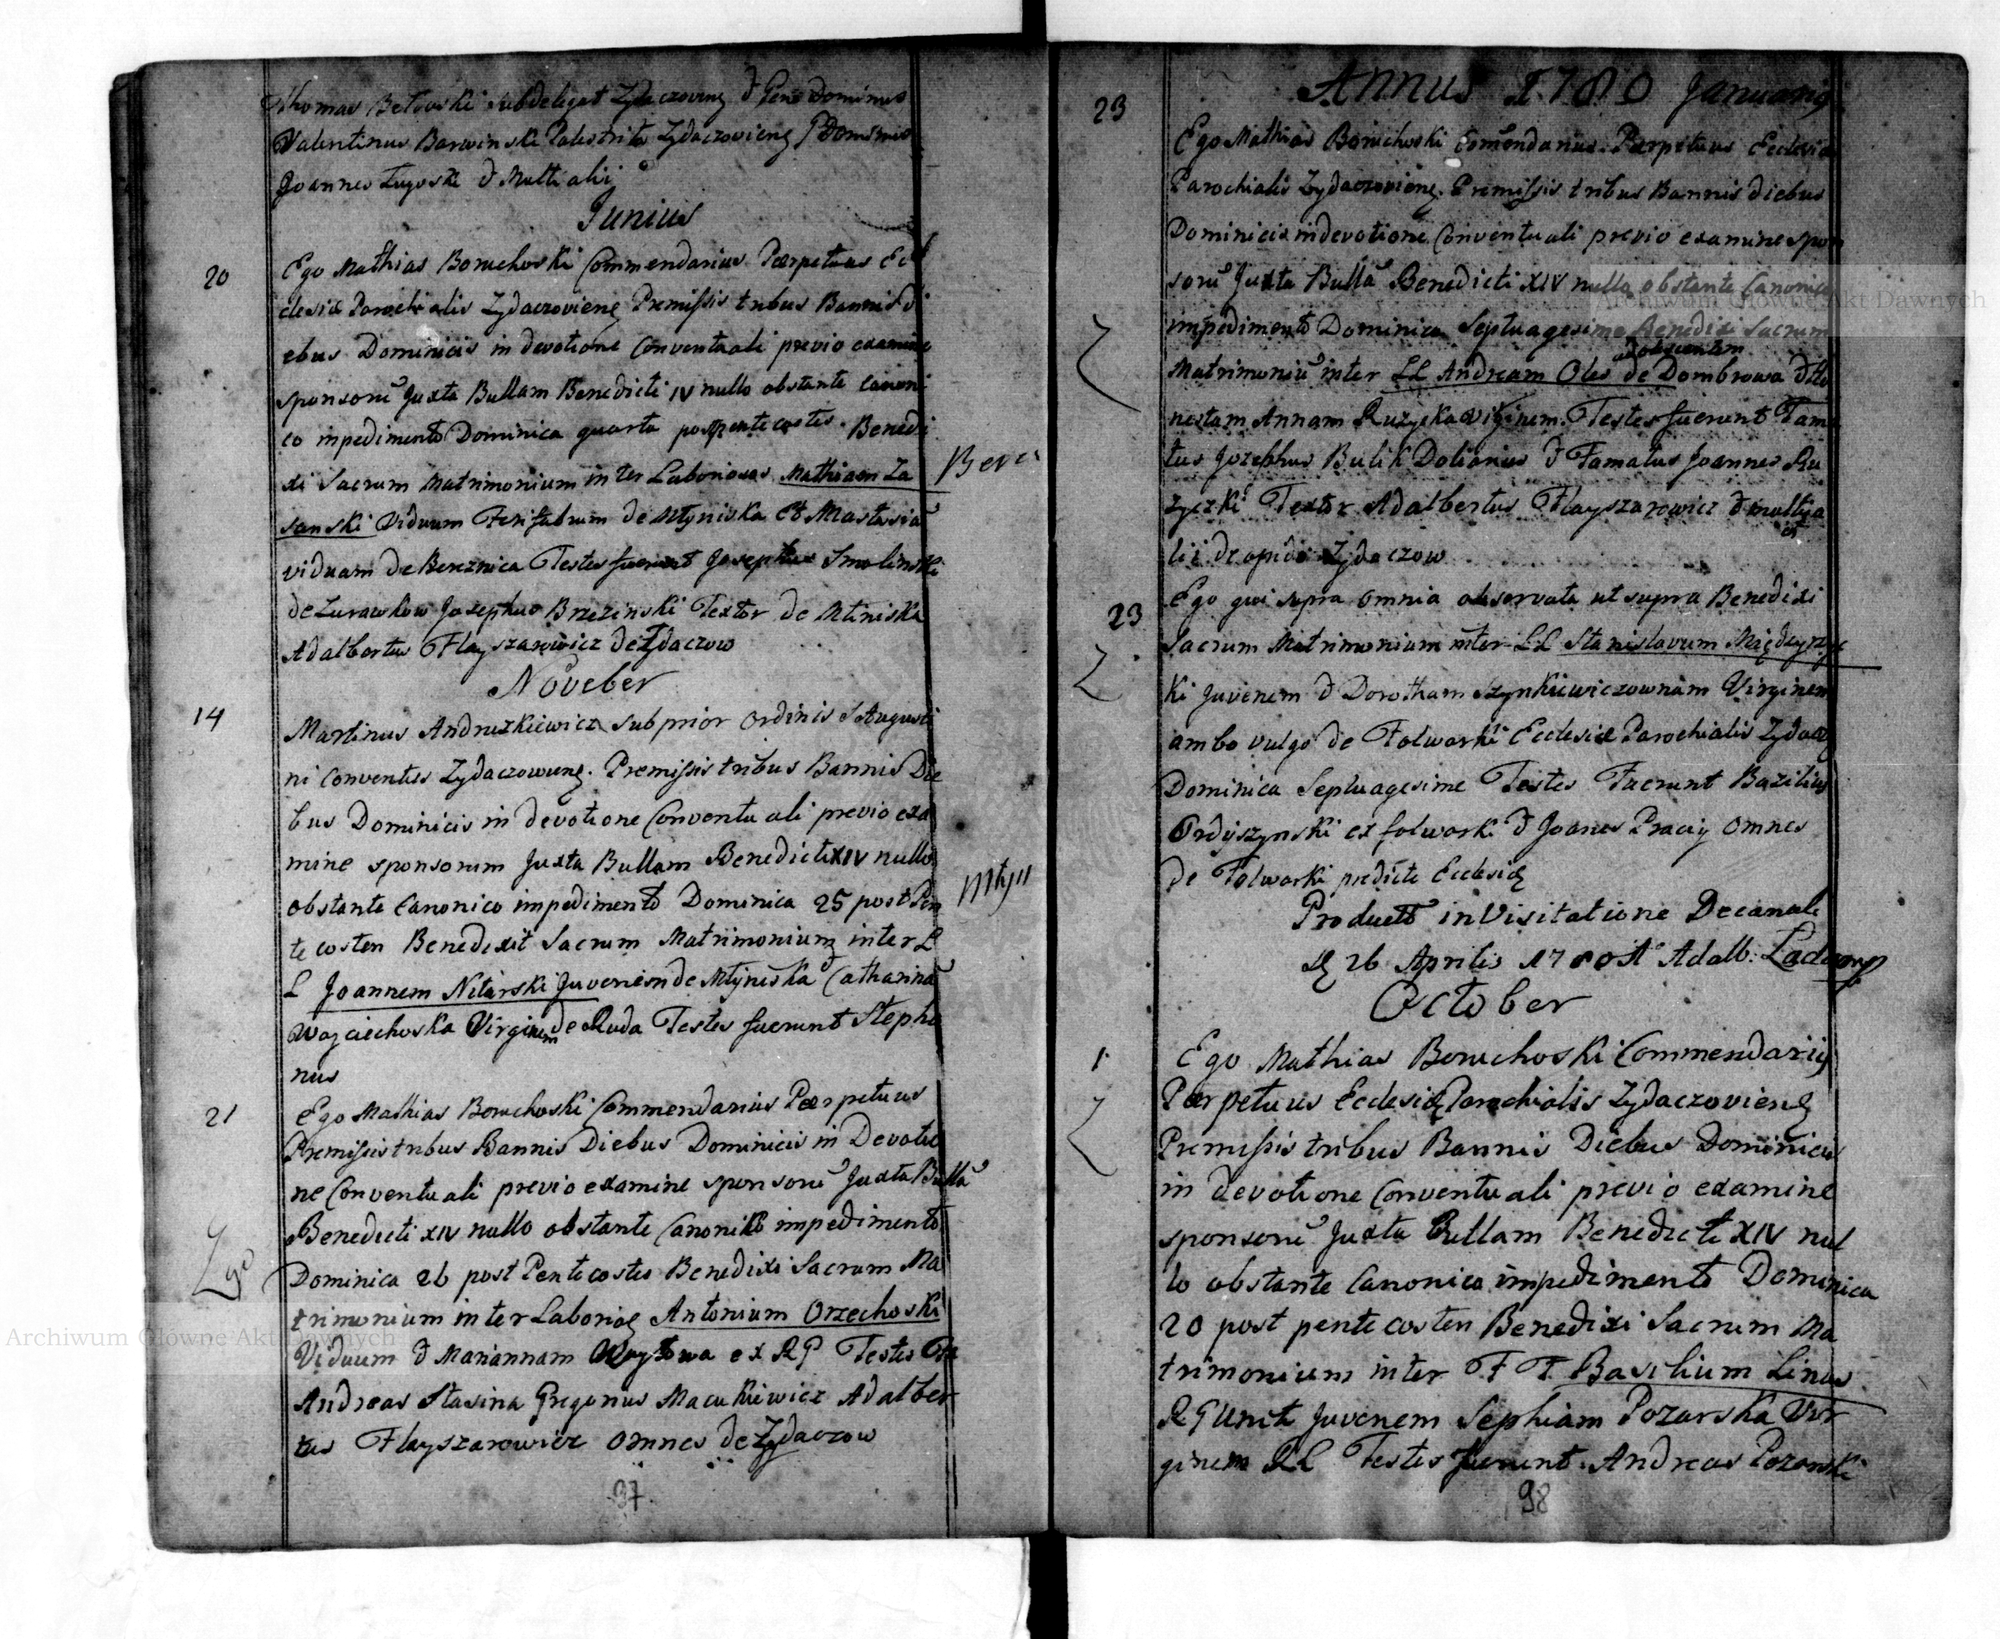 Thomas Betowski subdelegat Zydaczovieng & Gene Dominus
Valentinus Barwinski Palestrita Zydaczovieng & Dominus
Joannes Lugoski & Multi alii
Junius
20
Ego Mathias Boruchoski Commendarius Paerpetuus Ec
clesiæ Parochialis Zydaczovienę Premissis tribus Bannis Di
ebus Dominicis in devotione Conventuali previo examine
sponsorū Juxta Bullam Benedicti IV nullo obstante canoni
co inpedimento Dominica quarta post pentecostes. Benedi
xi Sacrum Matrimonium inter Laboriosos Mathiam Za
sanski Viduum Ferifabrum de Młyniska Et Mastasiā
viduam de Bereznica Testes fuerunt Josephus Smolinski
de Zurawkow Josephus Brzezinski Textor de Mliniska
Adalbertus Flayszarowicz de Zydaczow
Bere
Noveber
14
Martinus Andruzkiewicz subprior ordinis S Augusti
ni Conventus Zydaczowieng. Premissis tribus Bannis Die
bus Dominicis in devotione Conventuali previo exa
mine sponsorum Juxta Bullam Benedicti XIV nullo
obstante Canonico impedimento Dominica 25 post Pen
tecosten Benedixit Sacrum Matrimonium inter L
L Joannem Nitarski Juvenem de Młyniska & Catharinā
Wojciechoska Virginem de Ruda Testes fuerunt Stepha
nus
Młyn
21
Ego Mathias Boruchoski Commendarius Paerpetuus
Premissis tribus Bannis Diebus Dominicis in Devotio
ne Conventuali previo examine sponsorū Juxta Bullā
Benedicti XIV nullo obstante Canonico impedimento
Dominica 26 post Pentecostes Benedixi Sacrum Ma
trimonium inter Laborios Antonium Orzechoski
Viduum & Mariannam Woytowa ex RG Testes
Andreas Stasina Gregorius Macukiewicz Adalber
tus Flayszarowicz omnes de Zydaczow
Zyd
97
Annus 1780 Januarius
23
Ego Mathias Boruchoski Comendarius Paerpetuus Ecclesiæ
Parochialis Zydaczovienę. Premissis tribus Bannis diebus
Dominicis in devotione Conventuali previo examine spon
sorū Juxta Bullā Benedicti XIV nullo obstante Canonico
impedimento Dominica Septuagesime Benedixi Sacrum
Matrimoniū inter LL Andream Oles de Dombrowa & Ho
nestam Annam Ruzycka Virginem. Testes fuerunt Fama
tus Jozephus Bulik Doliarius & Famatus Joannes Ru
zyczki Textor Adalbertus Flayszarowicz & multi a
lii de opido Zydaczow
23
Ego qui supra omnia observata ut supra Benedixi
Sacrum Matrimonium inter LL Stanislavum Międzyrzyc
ki Juvenem & Dorotham Szynkiewiczownam Virginem
ambo vulgo de Folwarki Ecclesiæ Parochialis Zydacz
Dominica Septuagesime Testes Fuerunt Bazilius
Ordyszynski ex folwarki & Joanes Praciy omnes
de Folwarki predicte Ecclesię
Product in Visitatione Decanali
D 26 Aprilis 1780 A Adalb:
October
1.
Ego Mathias Boruchoski Commendarius
Paerpetuus Ecclesię Parochialis Zydaczovienę
Premissis tribus Bannis Diebus Dominicis
in devotione Conventuali previo examine
sponsorū Juxta Bullam Benedicti XIV nul
lo obstante Canonico impedimento Dominica
20 post pentecosten Benedixi Sacrum Ma
trimonium inter F F Basilium Linus
RG Unit Juvenem Sophiam Pozarska Vir
ginem RL Testes fuerunt. Andreas Pozarski
98
Archiwum Główne Akt Dawnych
Archiwum Główne Akt Dawnych